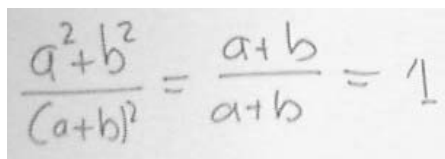 \frac{a^2+b^2}{(a+b)^2} = \frac{a+b}{a+b} = 1